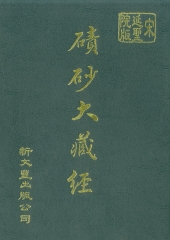 宋
延聖
院版
磧砂大藏經
新文豐出版公司